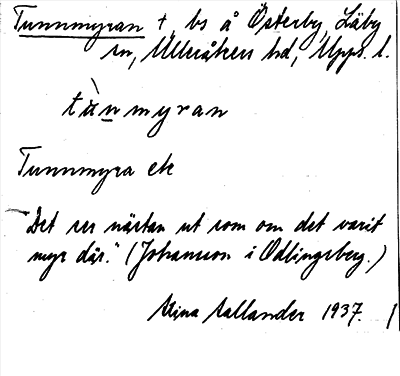 Tunnmyran + bs å Österby, Läby
sn, Ulleråkers hd, Upps. l.
tùn̲myran
Tunnmyra ek
"Det ser nästan ut som om det varit
myr där." (Johansson i Odlingsberg.)
Stina Sallander 1937.